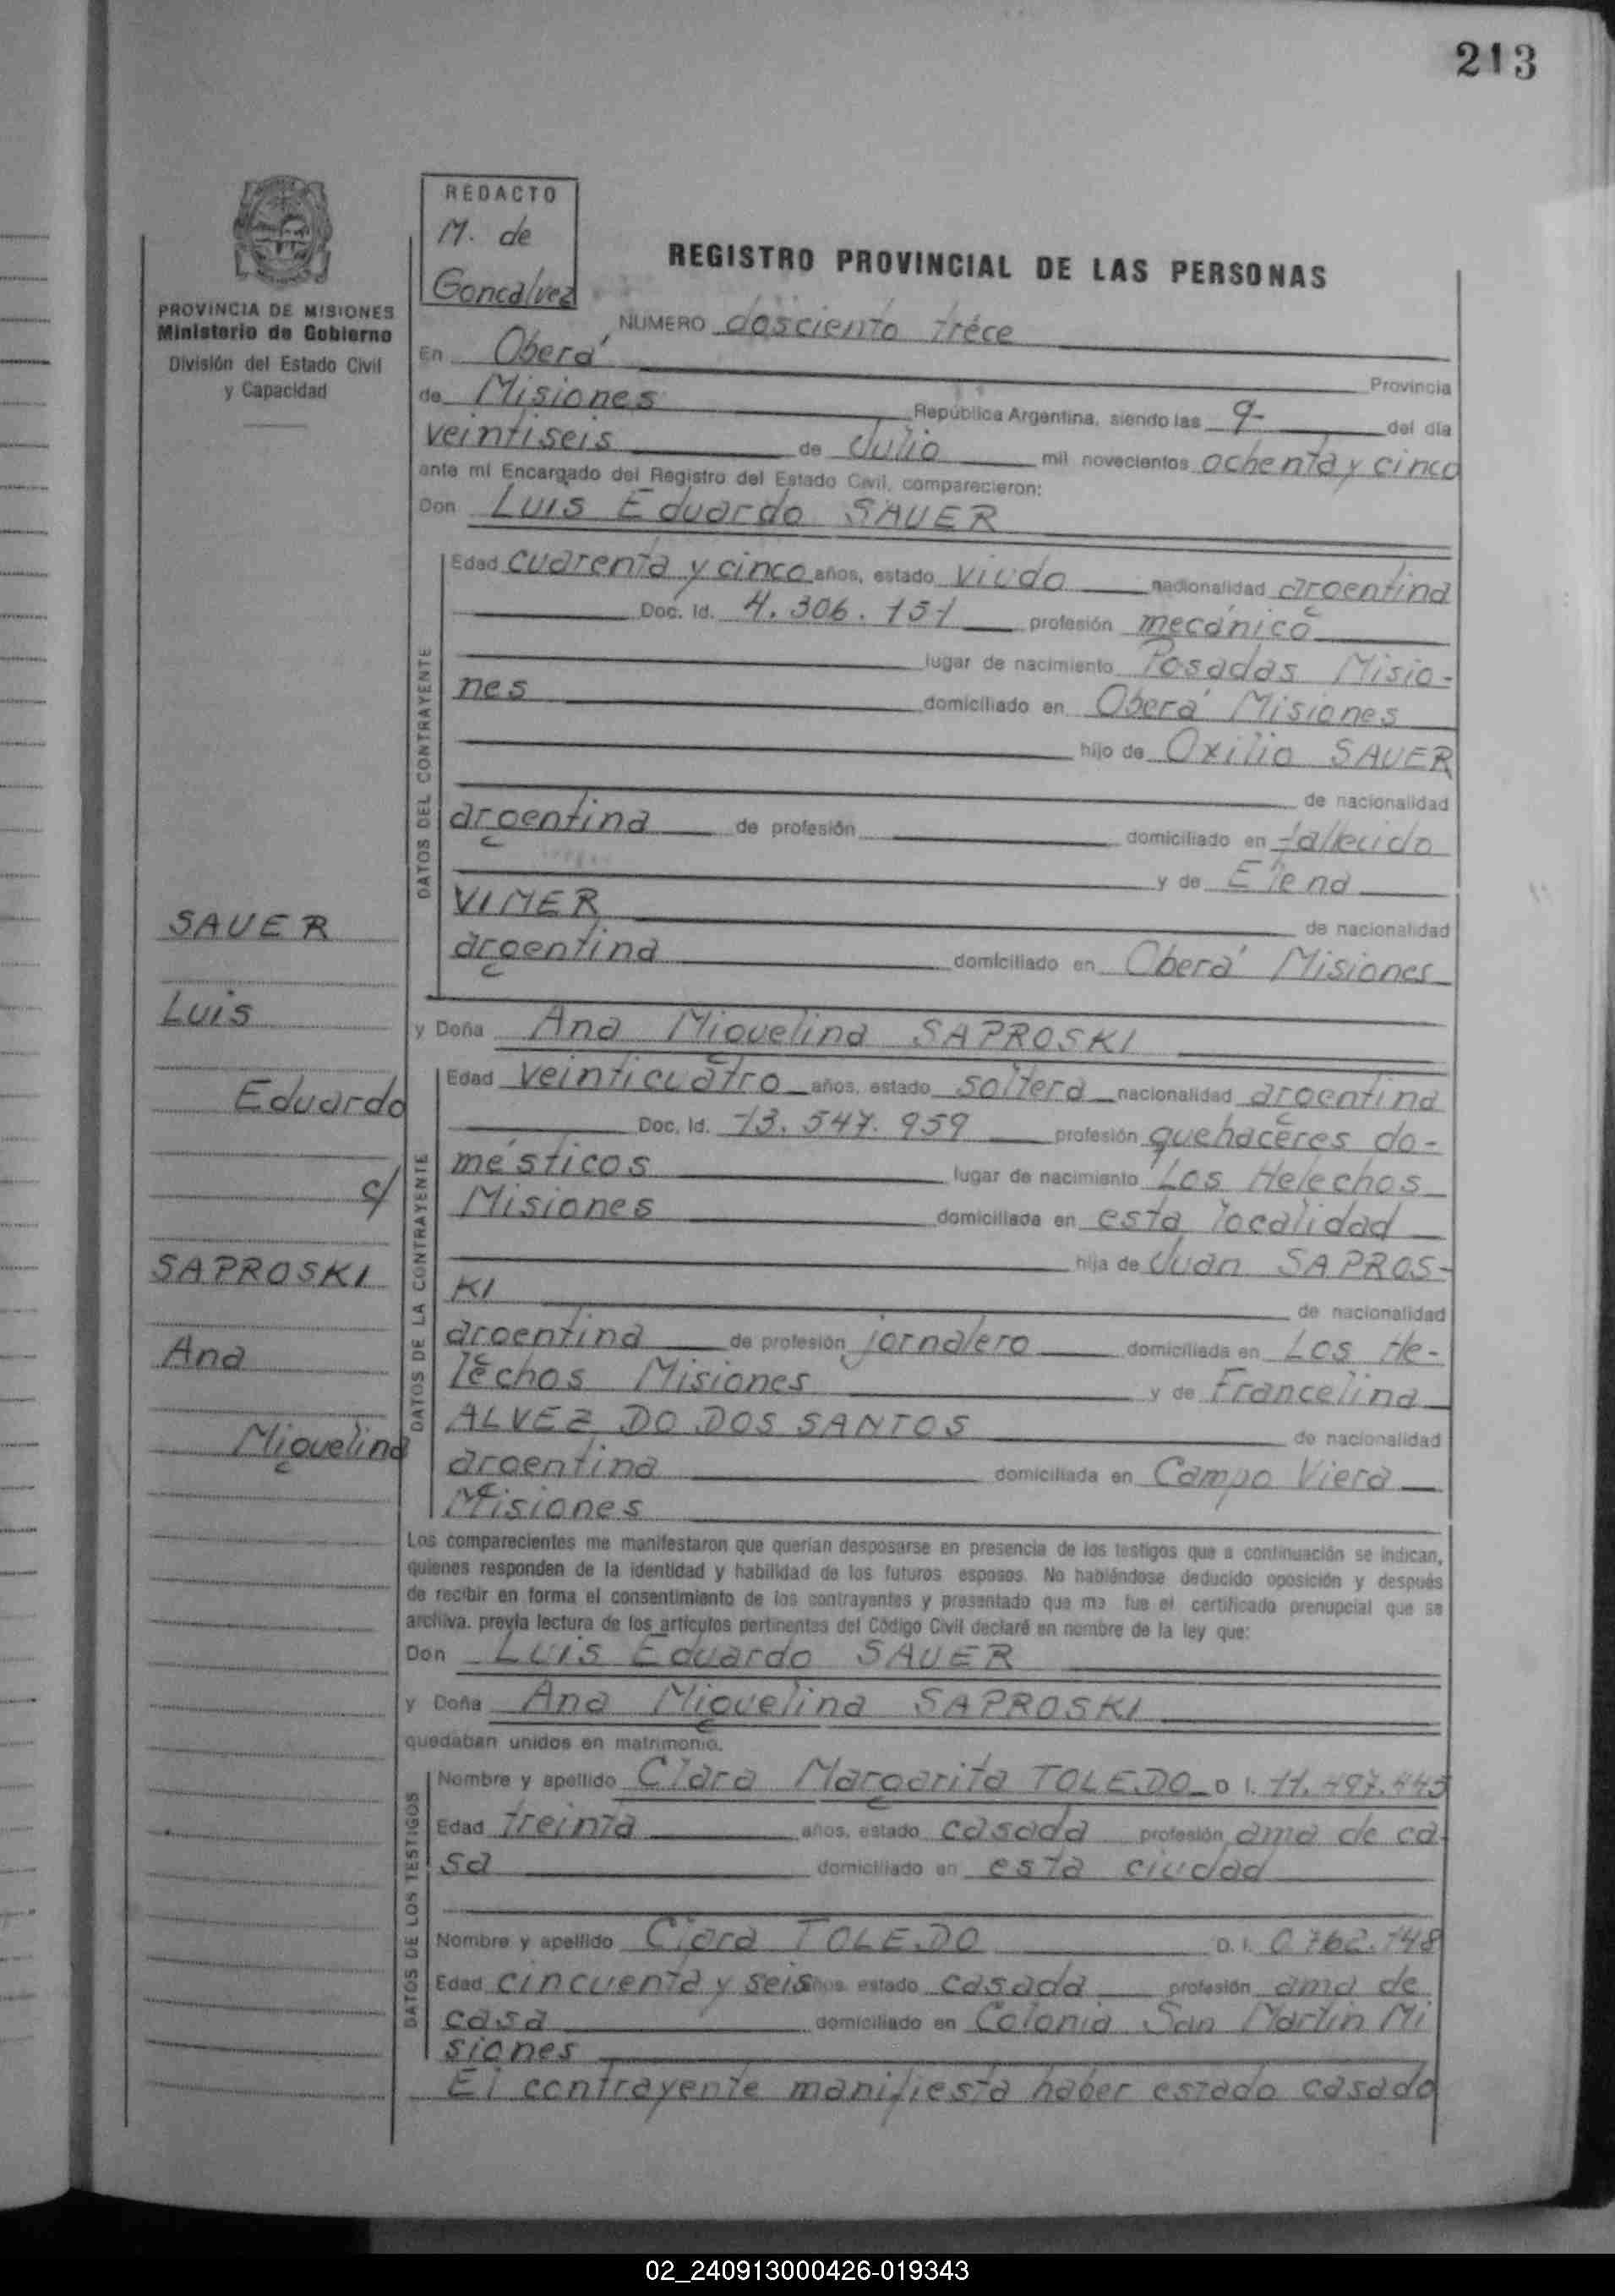 213
REDACTO
M. de
Goncalvez
PROVINCIA DE MISIONES
Ministerio de Gobierno
División del Estado Civil
y Capacidad
REGISTRO PROVINCIAL DE LAS PERSONAS
NUMERO dosciento trece
En Oberá Provincia
de Misiones República Argentina, siendo las 9- del día
veintiseis de Julio mil novecientos ochenta y cinco
ante mi Encargado del Registro del Estado Civil, comparecieron:
Don Luis Eduardo SAUER
DATOS DEL CONTRAYENTE
Edad cuarenta y cinco años, estado viudo nacionalidad argentina
Doc. Id. 4.306.151 profesión mecánico
lugar de nacimiento Posadas Misio-
nes domiciliado en Oberá Misiones
hijo de Oxilio SAUER
de nacionalidad
argentina de profesión domiciliado en fallecido
y de Elena
VIMER de nacionalidad
argentina domiciliado en Oberá Misiones
y Doña Ana Miguelina SAPROSKI
DATOS DE LA CONTRAYENTE
Edad veinticuatro años, estado soltera nacionalidad argentina
Doc. Id. 13.547.959 profesión quehaceres do-
mésticos lugar de nacimiento Los Helechos
Misiones domiciliada en esta localidad
hija de Juan SAPROS-
KI de nacionalidad
argentina de profesión jornalero domiciliada en Los He-
lechos Misiones y de Francelina
ALVEZ DO DOS SANTOS de nacionalidad
argentina domiciliada en Campo Viera
Misiones
SAUER
Luis
Eduardo
c/
SAPROSKI
Ana
Miguelina
Los comparecientes me manifestaron que querían desposarse en presencia de los testigos que a continuación se indican,
quienes responden de la identidad y habilidad de los futuros esposos. No habiéndose deducido oposición y después
de recibir en forma el consentimiento de los contrayentes y presentado que me fue el certificado prenupcial que se
archiva. previa lectura de los artículos pertinentes del Código Civil declaré en nombre de la ley que:
Don Luis Eduardo SAUER
y Doña Ana Miguelina SAPROSKI
quedaban unidos en matrimonio.
DATOS DE LOS TESTIGOS
Nombre y apellido Clara Margarita TOLEDO D I. 11.497.445
Edad treinta años, estado casada profesión ama de ca-
sa domiciliado en esta ciudad
Nombre y apellido Clara TOLEDO D. I. 0762.148
Edad cincuenta y seis años estado casada profesión ama de
casa domiciliado en Colonia San Martin Mi
siones
El contrayente manifiesta haber estado casado
02_240913000426-019343